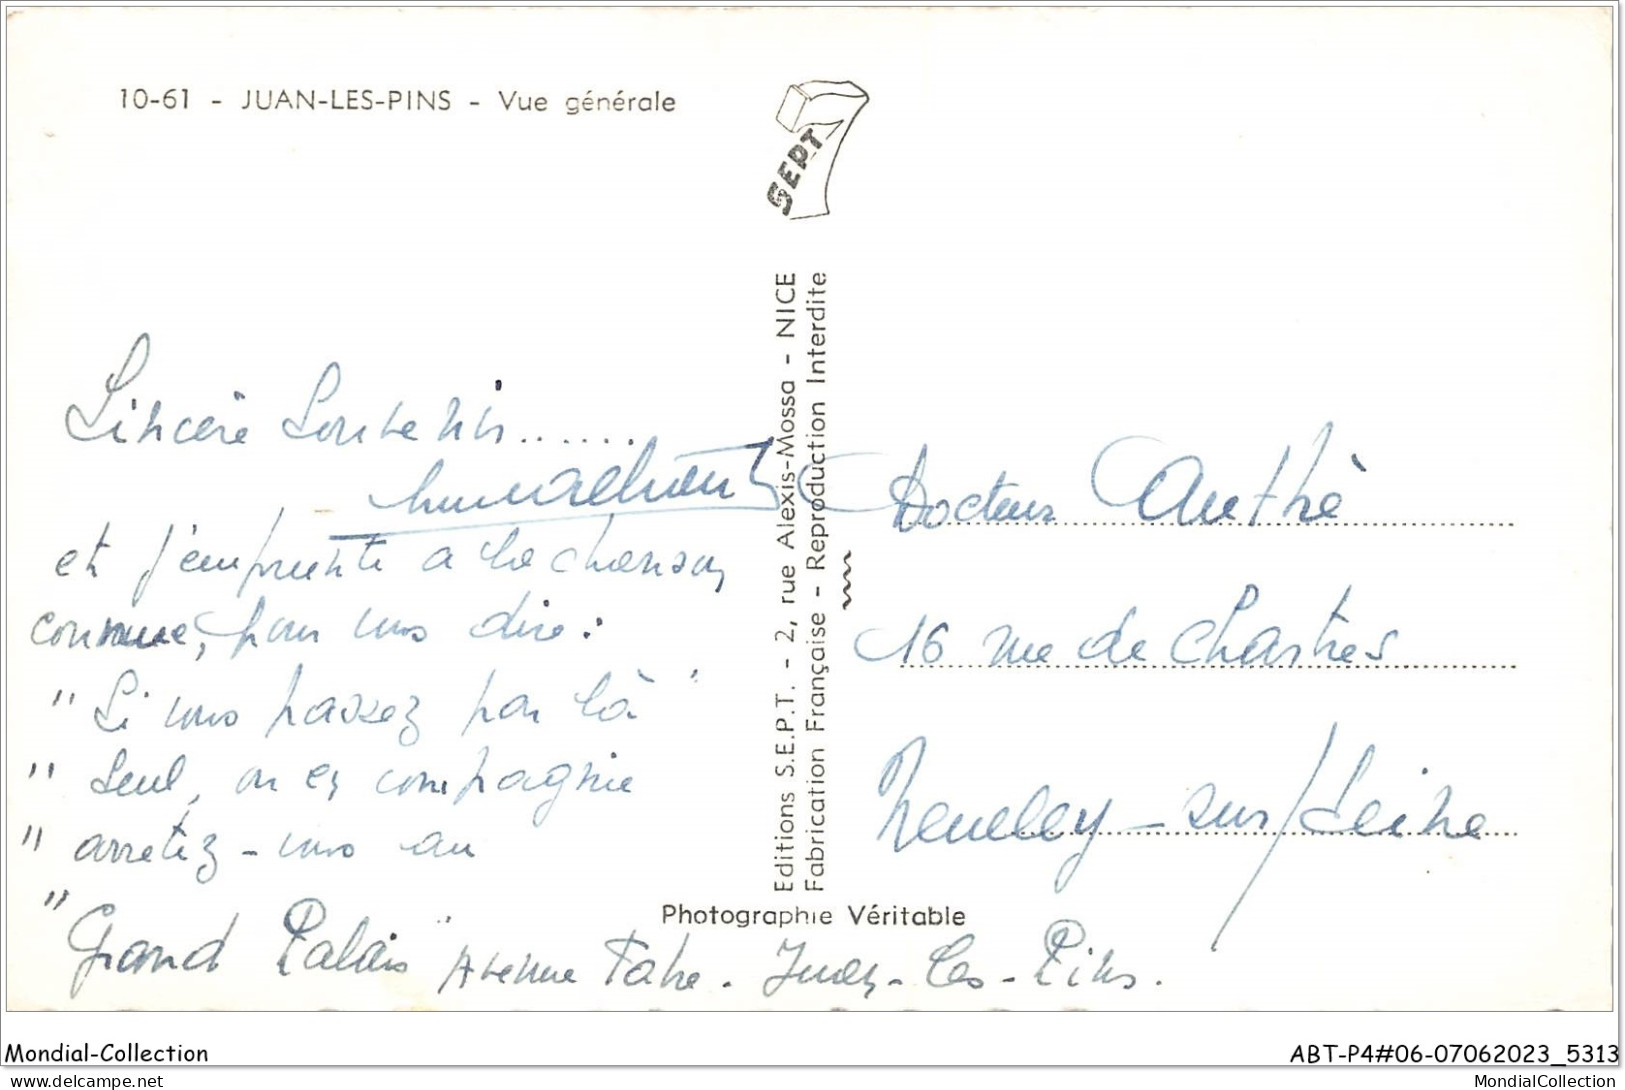 10-61 - JUAN-LES-PINS - Vue générale
7
SEPT
Editions S.E.P.T. - 2, rue Alexis-Mossa - NICE
Fabrication Française - Reproduction Interdite
Sincère Souvenir......
et j'emprunte a la chanson
connue, pour vous dire :
"Si vous passez par là"
"seul, ou en compagnie
"arretez-vous au
"Grand Palais" Avenue Fabre. Juan-les-Pins.
Docteur Authé
16 rue de Chartres
Neuilly-sur/Seine
Photographie Véritable
Mondial-Collection
ABT-P4#06-07062023_5313
MondialCollection